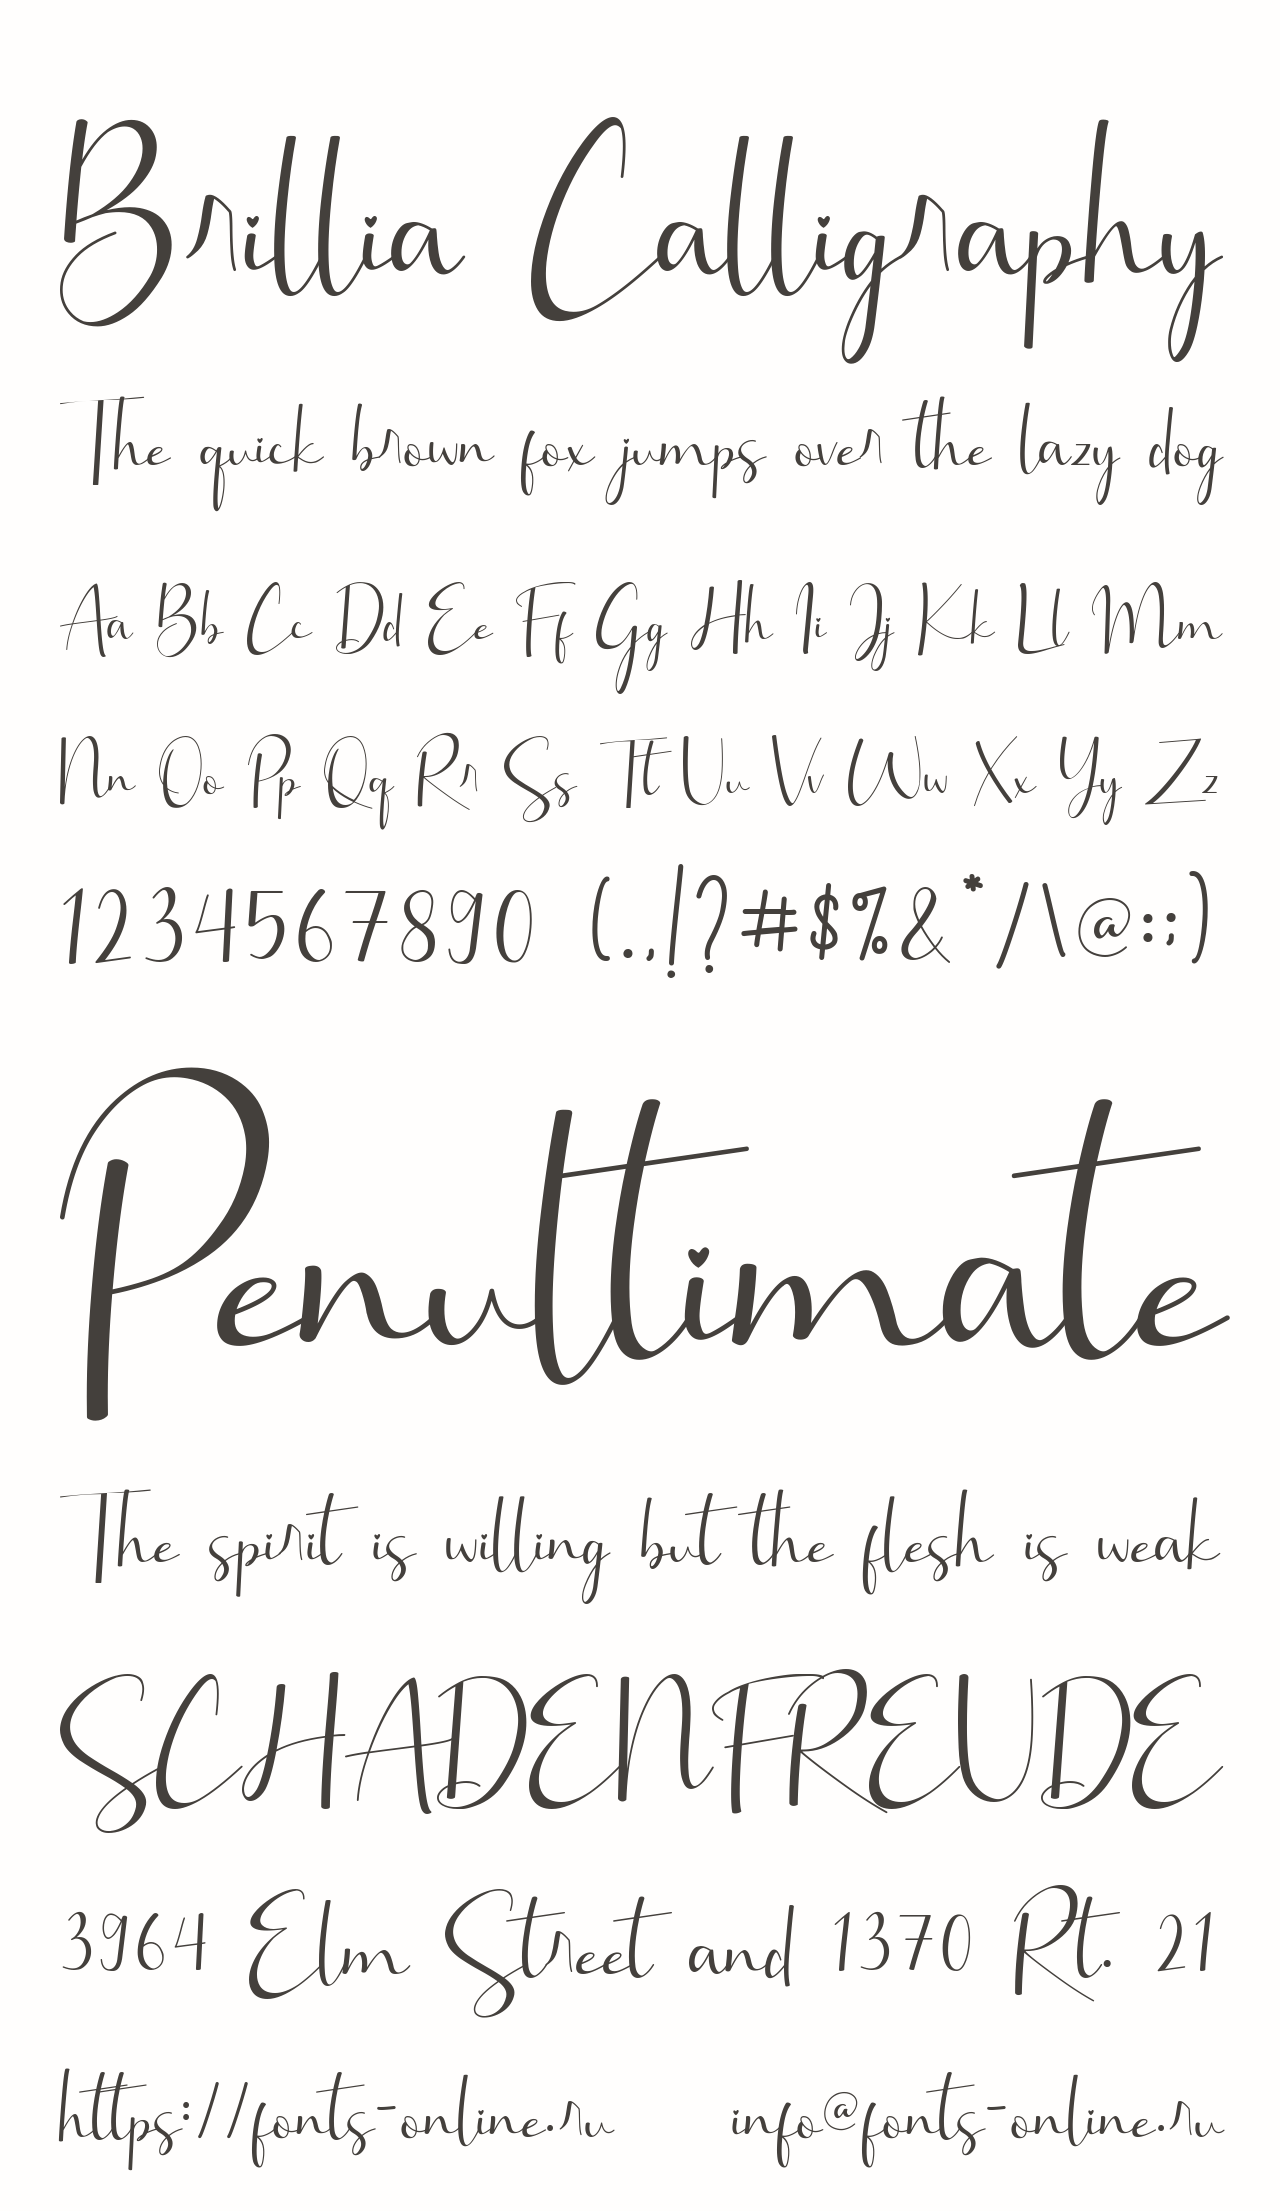 Brillia Calligraphy
The quick brown fox jumps over the lazy dog
Aa Bb Cc Dd Ee Ff Gg Hh Ii Jj Kk Ll Mm
Nn Oo Pp Qq Rr Ss Tt Uu Vv Ww Xx Yy Zz
1234567890 (.,!?#$%&*/\@:;)
Penultimate
The spirit is willing but the flesh is weak
SCHADENFREUDE
3964 Elm Street and 1370 Rt. 21
https://fonts-online.ru info@fonts-online.ru